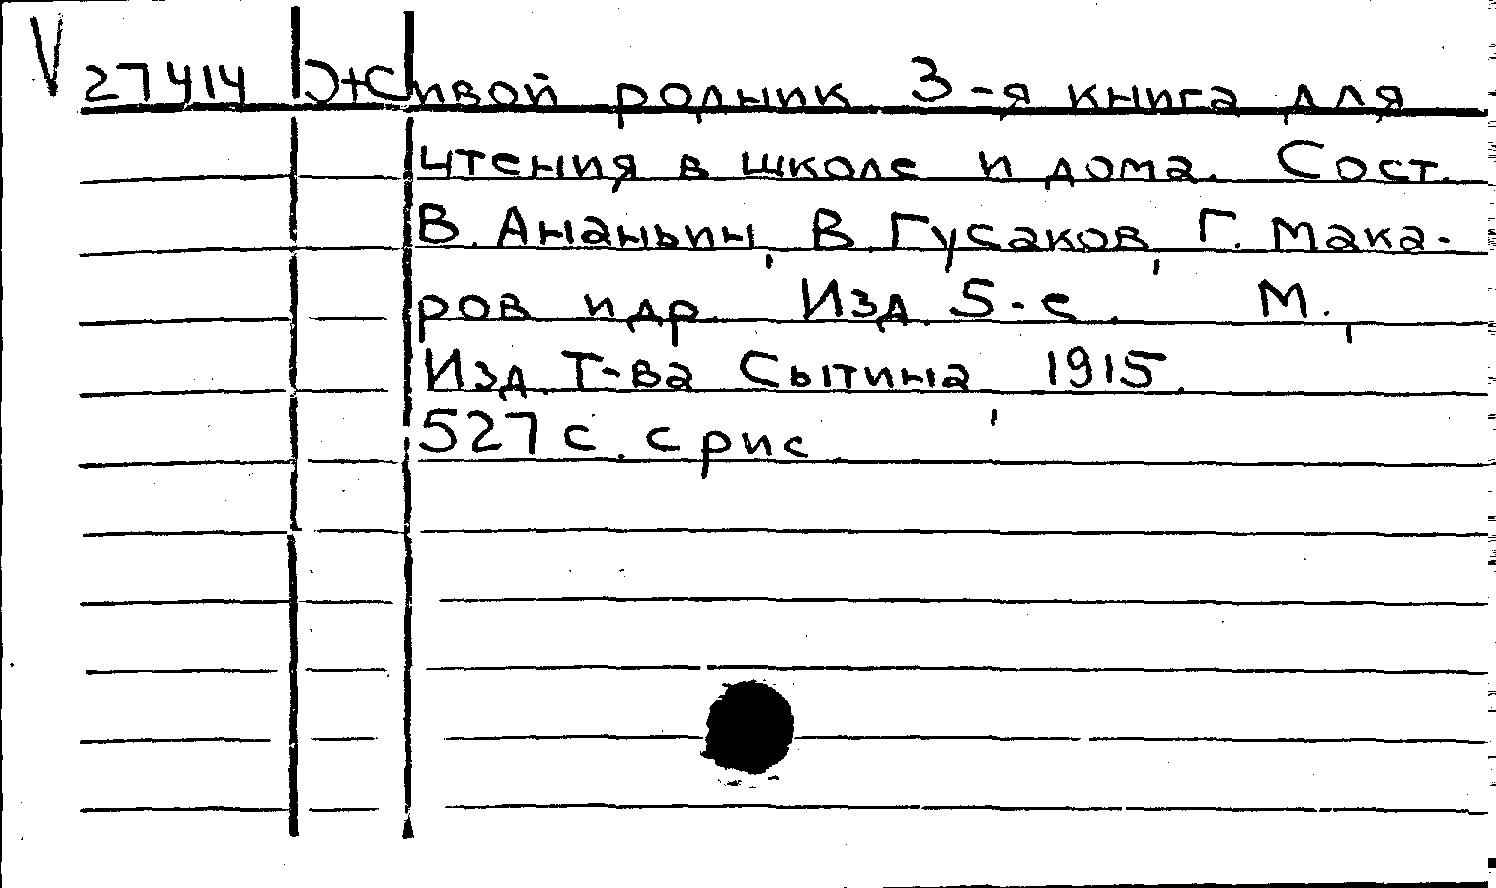 V 27414 Живой родник 3-я книга для
чтения в школе и дома. Сост.
В. Ананьин, В. Гусаков, Г. Мака-
ров и др. Изд. 5-е. М.,
Изд. Т-ва Сытина, 1915.
527 с. с рис.